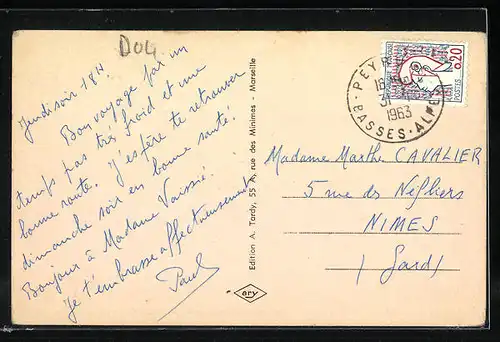 D04
Jeudi soir 18H.
Bon voyage par un
temps pas très froid et une
bonne route. J'espère te retrouver
dimanche soir en bonne santé.
Bonjour à Madame Vaissié.
Je t'embrasse affectueusement
Paul
Edition A. Tardy, 55 A, rue des Minimes - Marseille
ary
PEYR
1963
BASSES-ALPES
0,20
POSTES
Madame Marthe CAVALIER
5 rue des Néfliers
NIMES
(Gard)